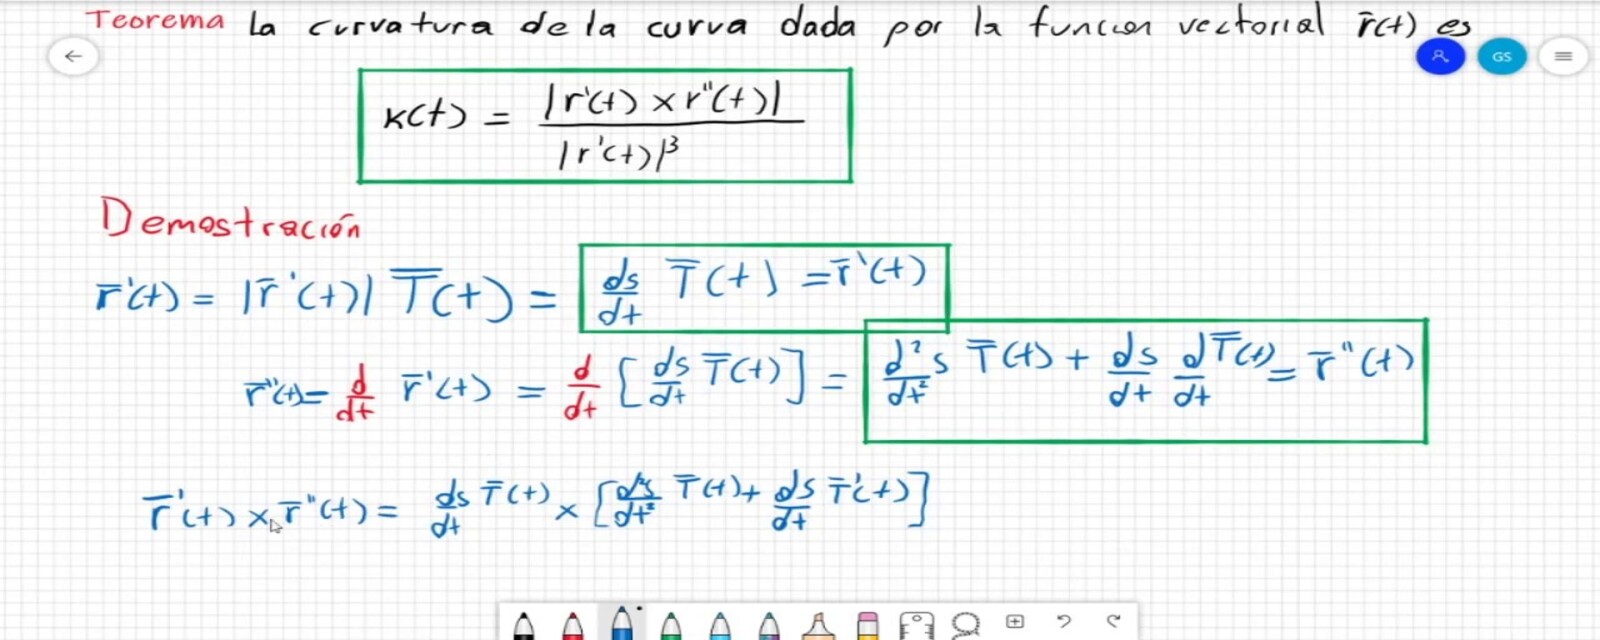 Teorema La curvatura de la curva dada por la funcion vectorial r̄(t) es
GS
K(t) = |r'(t) × r''(t)| / |r'(t)|³
Demostración
r̄'(t) = |r̄'(t)| T̄(t) = ds/dt T̄(t) = r̄'(t)
r̄''(t) = d/dt r̄'(t) = d/dt [ds/dt T̄(t)] = d²s/dt² T̄(t) + ds/dt dT̄(t)/dt = r̄''(t)
r̄'(t) × r̄''(t) = ds/dt T̄(t) × [d²s/dt² T̄(t) + ds/dt T̄'(t)]